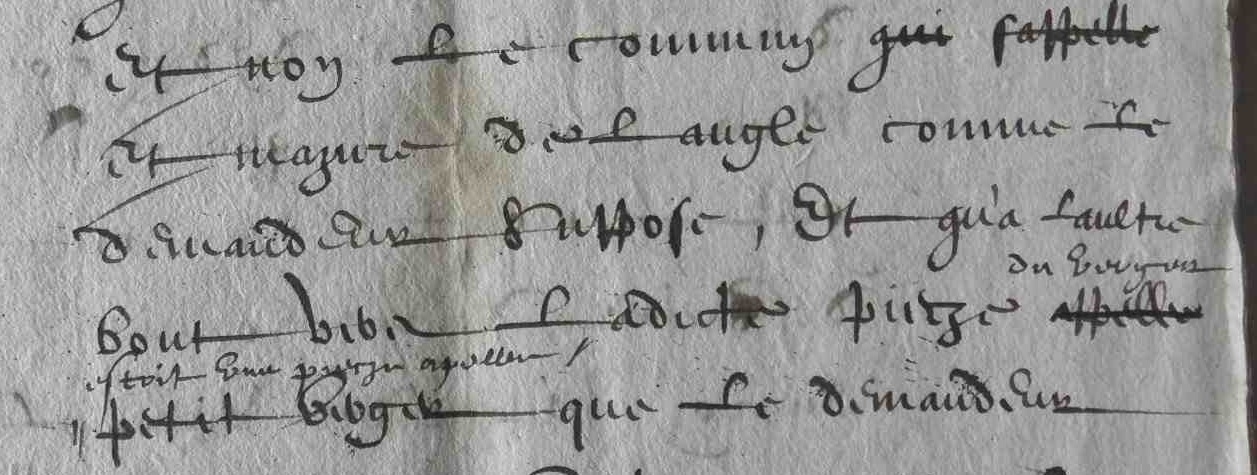 Et non le commun qui sappelle
Et mazure de langle comme le
demandeur suppose, Et qu'a laultre
du
bout ladicte pietze appelle
estoit une pietze apellee /
petit que le demandeur